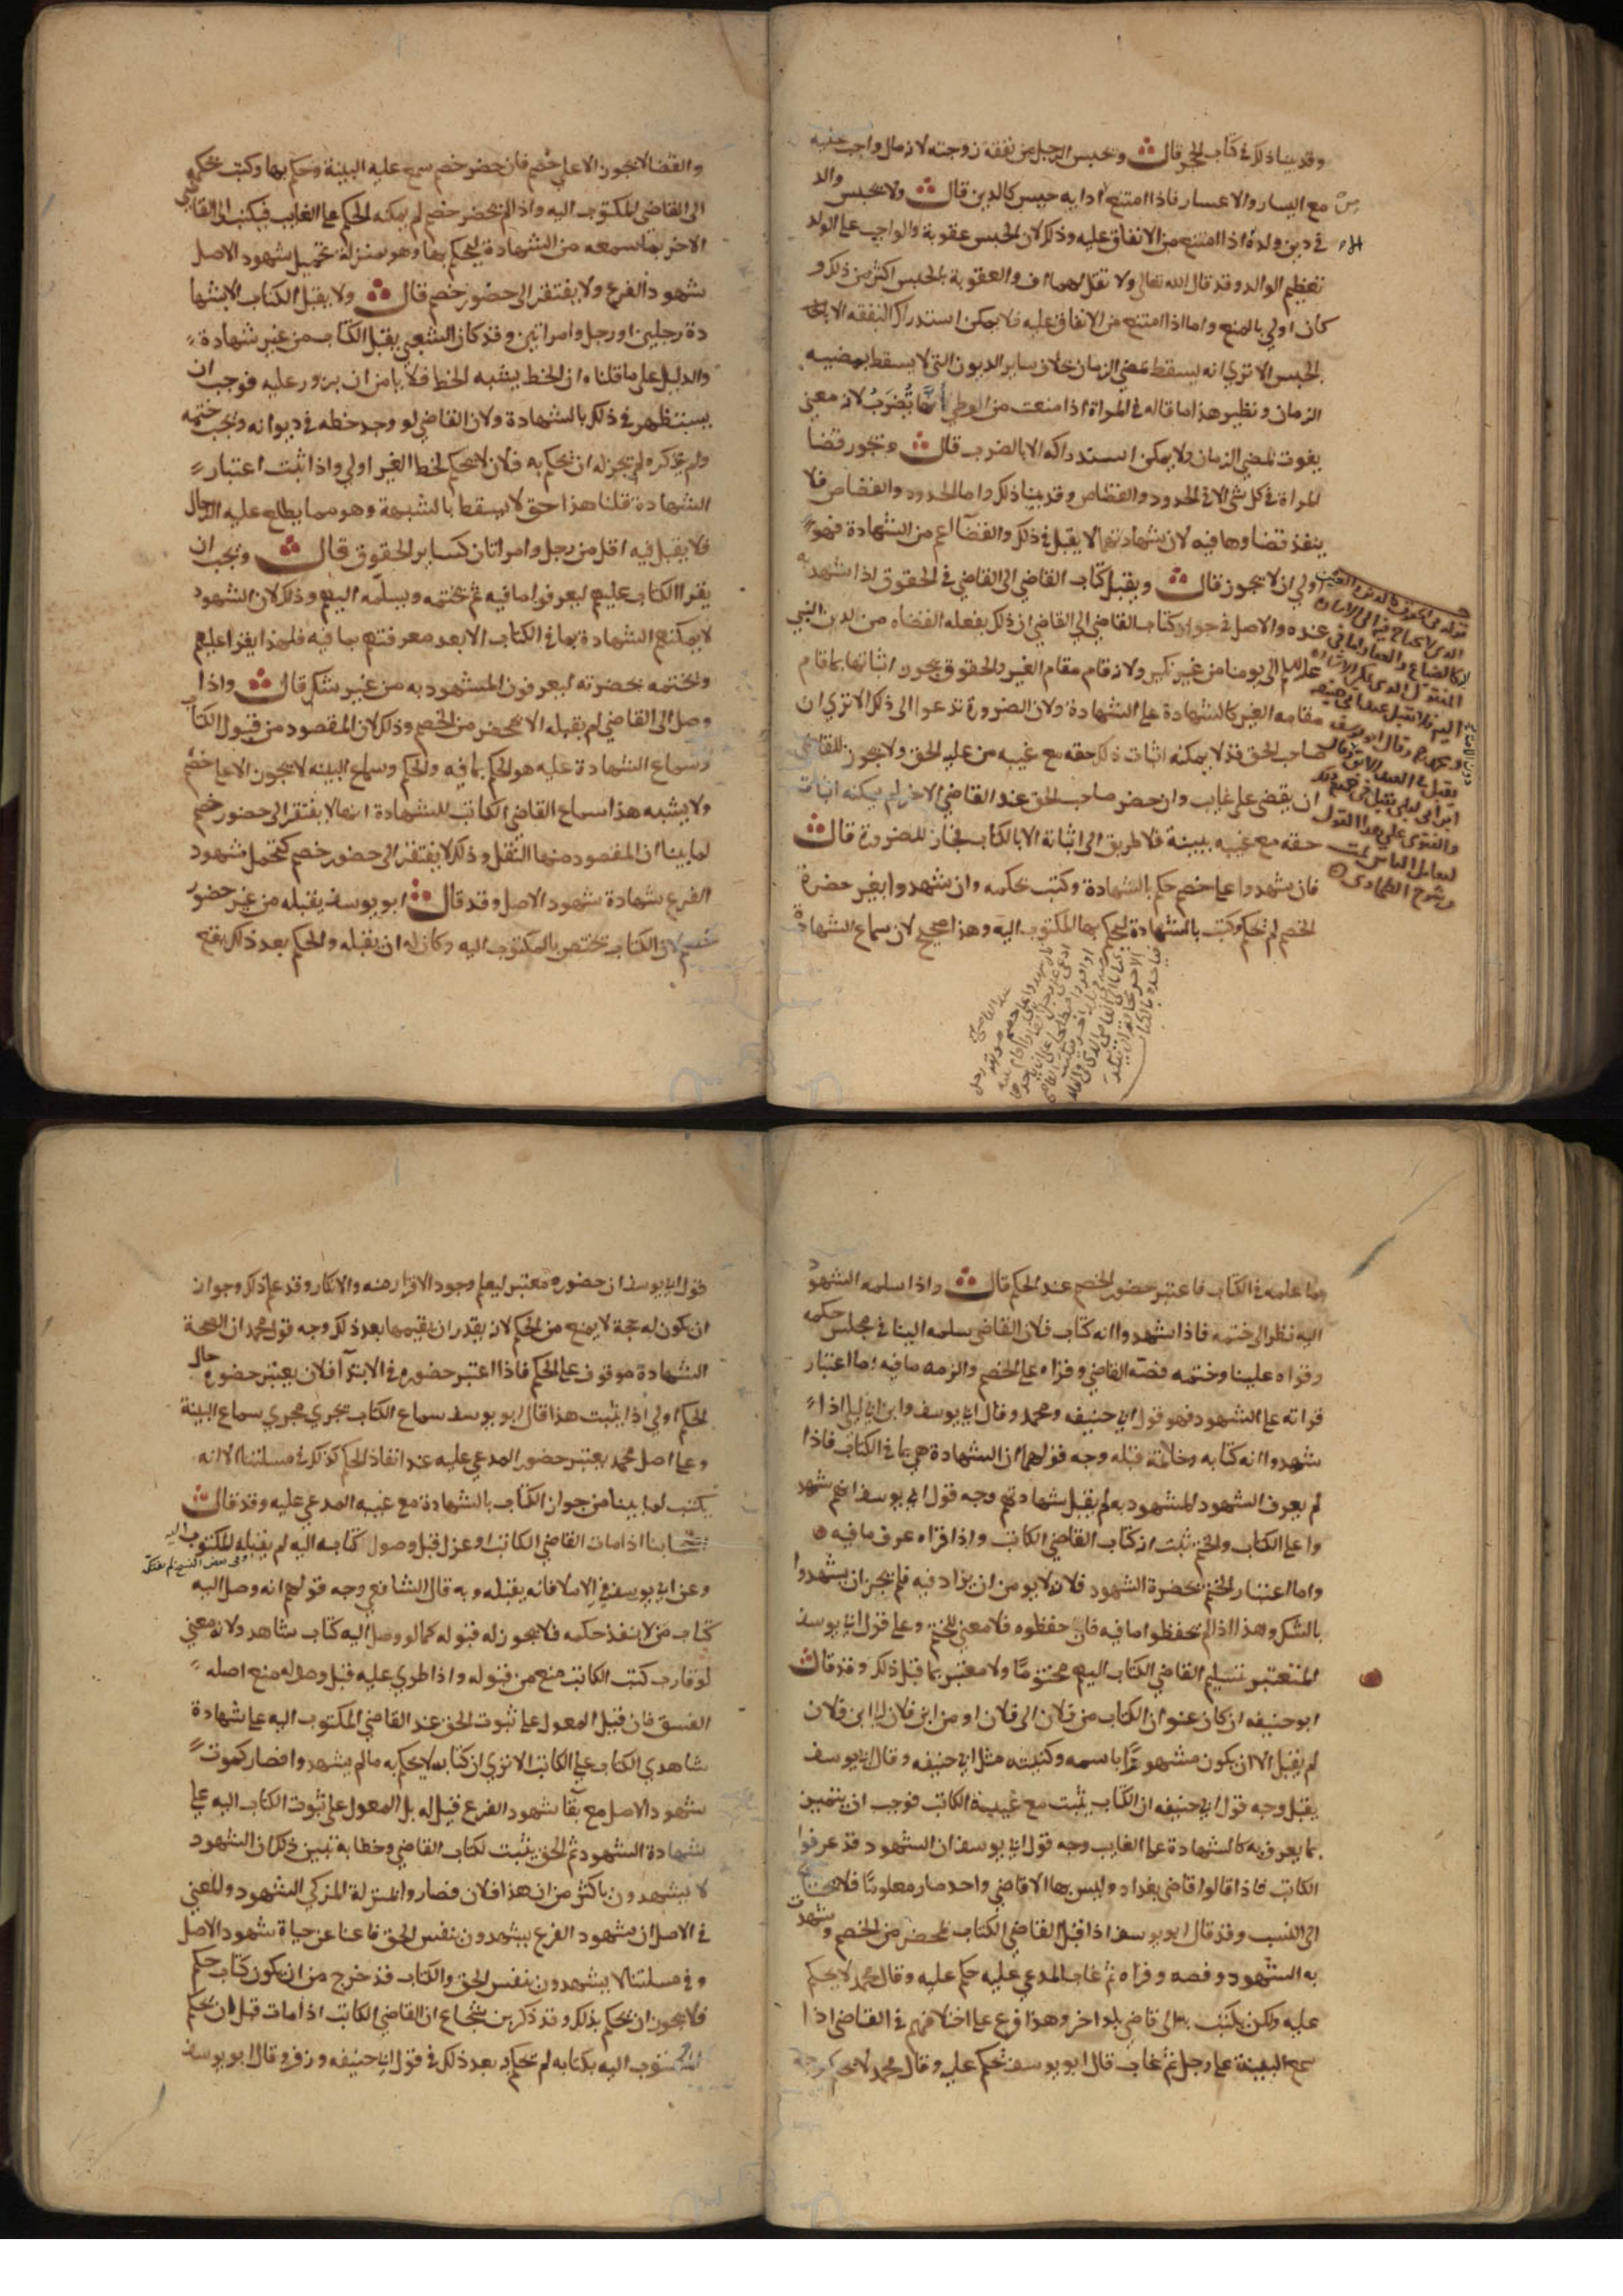 وقد بينا ذلك في كتاب الحجر قال ويحبس الرجل في نفقة زوجته لانه مال واجب عليه
مع اليسار والاعسار فاذا امتنع ادايه حبس كالدين قال ولا يحبس والد
في دين ولده اذا امتنع من الانفاق عليه وذلك لان الحبس عقوبة والواجب على الولد
تعظيم الوالد وقد قال الله تعالى ولا تقل لهما اف والعقوبة بالحبس اكثر من ذلك و
كان اولي بالمنع واما اذا امتنع من الانفاق عليه فلا يمكن استدراك النفقه الا
بالحبس الا تري انه يسقط بمضي الزمان خلاف ساير الديون التي لا يسقط بمضي
الزمان ونظير هذا ما قاله في المراة اذا منعت من الوطي انها تُضرب لانه معني
يفوت بمضي الزمان ولا يمكن استدراكه الا بالضرب قال ويجوز قضا
المراة في كل شي الا في الحدود والقصاص وقد بينا ذلك واما الحدود والقصاص فلا
ينفذ قضاوها فيه لان شهادتها لا يقبل في ذلك والقضآ اعم من الشهادة فهو
اولي ان لا يجوز قال ويقبل كتاب القاضي الى القاضي في الحقوق اذا شهد به
عنده والاصل في جواز كتاب القاضي الى القاضي ان ذلك يفعله القضاه من لدن النبي
عليه السلام الى يومنا من غير نكير ولانه قام مقام الغير والحقوق يجوز اثباتها بما قام
مقامه الغير كالشهادة على الشهادة ولان الضرورة تدعوا الى ذلك الا تري ان
صاحب الحق قد لا يمكنه اثبات ذلك حقه مع غيبه من عليه الحق ولا يجوز للقاضي
ان يقضي على غايب وان حضر صاحب الحق عند القاضي الاخر لم يمكنه اثبات
حقه مع غيبه ببينة فلا طريق الى اثباته الا بالكتاب فجاز للضرورة قال
فان شهدوا على خصم حكم بالشهادة وكتب بحكمه وان شهدوا بغير حضرة
الخصم لم يحكم وكتب بالشهادة ليحكم بها المكتوب اليه وهذا صحيح لان سماع الشهادة
والقضا لا يجوز الا على خصم فان حضر خصم سمع عليه البينة وحكم بها وكتب بحكمه
الى القاضي المكتوب اليه واذا لم يحضر خصم لم يمكنه الحكم على الغايب فيكتب الى القاضي
الاخر بما سمعه من الشهادة ليحكم بها وهو بمنزلة تحميل شهود الاصل
شهود الفرع ولا يفتقر الى حضور خصم قال ولا يقبل الكتاب الا بشها
دة رجلين او رجل وامراتين وقد كان الشعبي يقبل الكتاب من غير شهادة
والدليل على ما قلناه ان الخط يشبه الخط فلا يامن ان يزور عليه فوجب ان
يستظهر في ذلك بالشهادة ولان القاضي لو وجد خطه في ديوانه وتحت ختمه
ولم يذكره لم يجز له ان يحكم به فلان لا يحكم بخط الغير اولي واذا ثبت اعتبار
الشهادة قلنا هذا حق لا يسقط بالشبهة وهو مما يطلع عليه الرجال
فلا يقبل فيه اقل من رجل وامراتان كساير الحقوق قال ويجب ان
يقرا الكتاب عليهم ليعرفوا ما فيه ثم يختمه ويسلمه اليهم وذلك لان الشهود
لا يمكنهم الشهادة بما في الكتاب الا بعد معرفتهم بما فيه فلهذا يقرا عليهم
ويختمه بحضرته ليعرفون المشهود به من غير شك قال واذا
وصل الى القاضي لم يقبله الا بمحضر من الخصم وذلك لان المقصود من قبول الكتاب
وسماع الشهادة عليه هو الحكم بما فيه والحكم وسماع البينه لا يجوز الا على خصم
ولا يشبه هذا سماع القاضي الكاتب للشهادة انها لا يفتقر الى حضور خصم
لما بينا ان المقصود منها النقل وذلك لا يفتقر الى حضور خصم كتحمل شهود
الفرع شهادة شهود الاصل وقد قال ابو يوسف يقبله من غير حضور
خصم لان الكتاب يختص بالمكتوب اليه وكان له ان يقبله والحكم بعد ذلك يقع
بما علمه في الكتاب فاعتبر حضور الخصم عند الحكم قال واذا سلمه الشهود
اليه نظر الى ختمه فاذا شهدوا انه كتاب فلان القاضي سلمه الينا في مجلس حكمه
وقراه علينا وختمه فضه القاضي وقراه على الخصم والزمه ما فيه اما اعتبار
قراته على الشهود فهو قول ابي حنيفه ومحمد وقال ابي يوسف وابن ابي ليلى اذا
شهدوا انه كتابه وخاتمه قبله وجه قولهما ان الشهادة هي بما في الكتاب فاذا
لم يعرف الشهود المشهود به لم يقبل شهادتهم وجه قول ابي يوسف انهم شهد
وا على الكتاب والختم ثبت انه كتاب القاضي الكاتب واذا قراه عرف ما فيه
واما اعتبار الختم بحضرة الشهود فلانه لا يومن ان يزاد فيه فلم يجز ان يشهدوا
بالشك وهذا اذا لم يحفظوا ما فيه فان حفظوه فلا معني للختم وعلى قول ابي يوسف
المعتبر تسليم القاضي الكتاب اليهم مختومًا ولا معتبر بما قبل ذلك وقد قال
ابو حنيفه ان كان عنوان الكتاب من فلان الى فلان او من ابن فلان الى ابن فلان
لم يقبل الا ان يكون مشهورًا باسمه وكنيته مثل ابي حنيفه وقال ابي يوسف
يقبل وجه قول ابي حنيفه ان الكتاب يثبت مع غيبة الكاتب فوجب ان يتميز
بما يعرف به كالشهادة على الغايب وجه قول ابي يوسف ان الشهود قد عرفوا
الكاتب فاذا قالوا قاضي بغداد وليس بها الا قاضي واحد صار معلومًا فلا يحتاج
الى النسب وقد قال ابو يوسف اذا قبل القاضي الكتاب بمحضر من الخصم وشهدت
به الشهود وفضه وقراه ثم غاب المدعي عليه حكم عليه وقال محمد لا يحكم
عليه ولكن يكتب به الى قاضي بلد اخر وهذا فرع على اختلافهم في القاضي اذا
سمع البينة على رجل ثم غاب قال ابو يوسف يحكم عليه وقال محمد لا يحكم وجه
قول ابي يوسف ان حضوره معتبر ليعلم وجود الاقرار منه والانكار وقد علم ذلك وجواز
ان يكون له حجة لا يمنع من الحكم لانه يقدر ان يقيمها بعد ذلك وجه قول محمد ان الصحة
الشهادة موقوف على الحكم فاذا اعتبر حضوره في الابتدآ فلان يعتبر حضوره حال
الحكم اولي اذا ثبت هذا قال ابو يوسف سماع الكتاب يجري مجري سماع البينة
وعلى اصل محمد يعتبر حضور المدعي عليه عند انفاذ الحكم كذلك في مسلتنا الا انه
يكتب لما بينا من جواز الكتاب بالشهادة مع غيبه المدعي عليه وقد قال
اصحابنا اذا مات القاضي الكاتب او عزل قبل وصول كتابه اليه لم يقبله المكتوب اليه
وعن ابي يوسف في الاملا فانه يقبله وبه قال الشافعي وجه قولهم انه وصل اليه
كتاب من لا ينفذ حكمه فلا يجوز له قبوله كما لو وصل اليه كتاب شاهد ولانه معني
لو قارب كتب الكاتب منع من قبوله واذا طري عليه قبل وصوله منع اصله
الفسق فان قيل المعول على ثبوت الحق عند القاضي المكتوب اليه على شهادة
شاهدي الكتاب على الكاتب الا تري ان كتابه لا يحكم به ما لم يشهدوا فصار كموت
شهود الاصل مع بقآ شهود الفرع قيل له بل المعول على ثبوت الكتاب اليه على
شهادة الشهود ثم الحق يثبت لكتاب القاضي وخطابه تبين ذلك ان الشهود
لا يشهدون باكثر من ان هذا فلان فصاروا بمنزلة المزكي الشهود والمعني
في الاصل ان شهود الفرع يشهدون بنفس الحق فاغنا عن حياة شهود الاصل
وفي مسلتنا لا يشهدون بنفس الحق والكتاب قد خرج من ان يكون كتاب حكم
فلا يجوز ان يحكم بذلك وقد ذكر بن شجاع ان القاضي الكاتب اذا مات قبل ان يحكم
المكتوب اليه بكتابه لم يحكم به بعد ذلك في قول ابي حنيفه وزفر وقال ابو يوسف